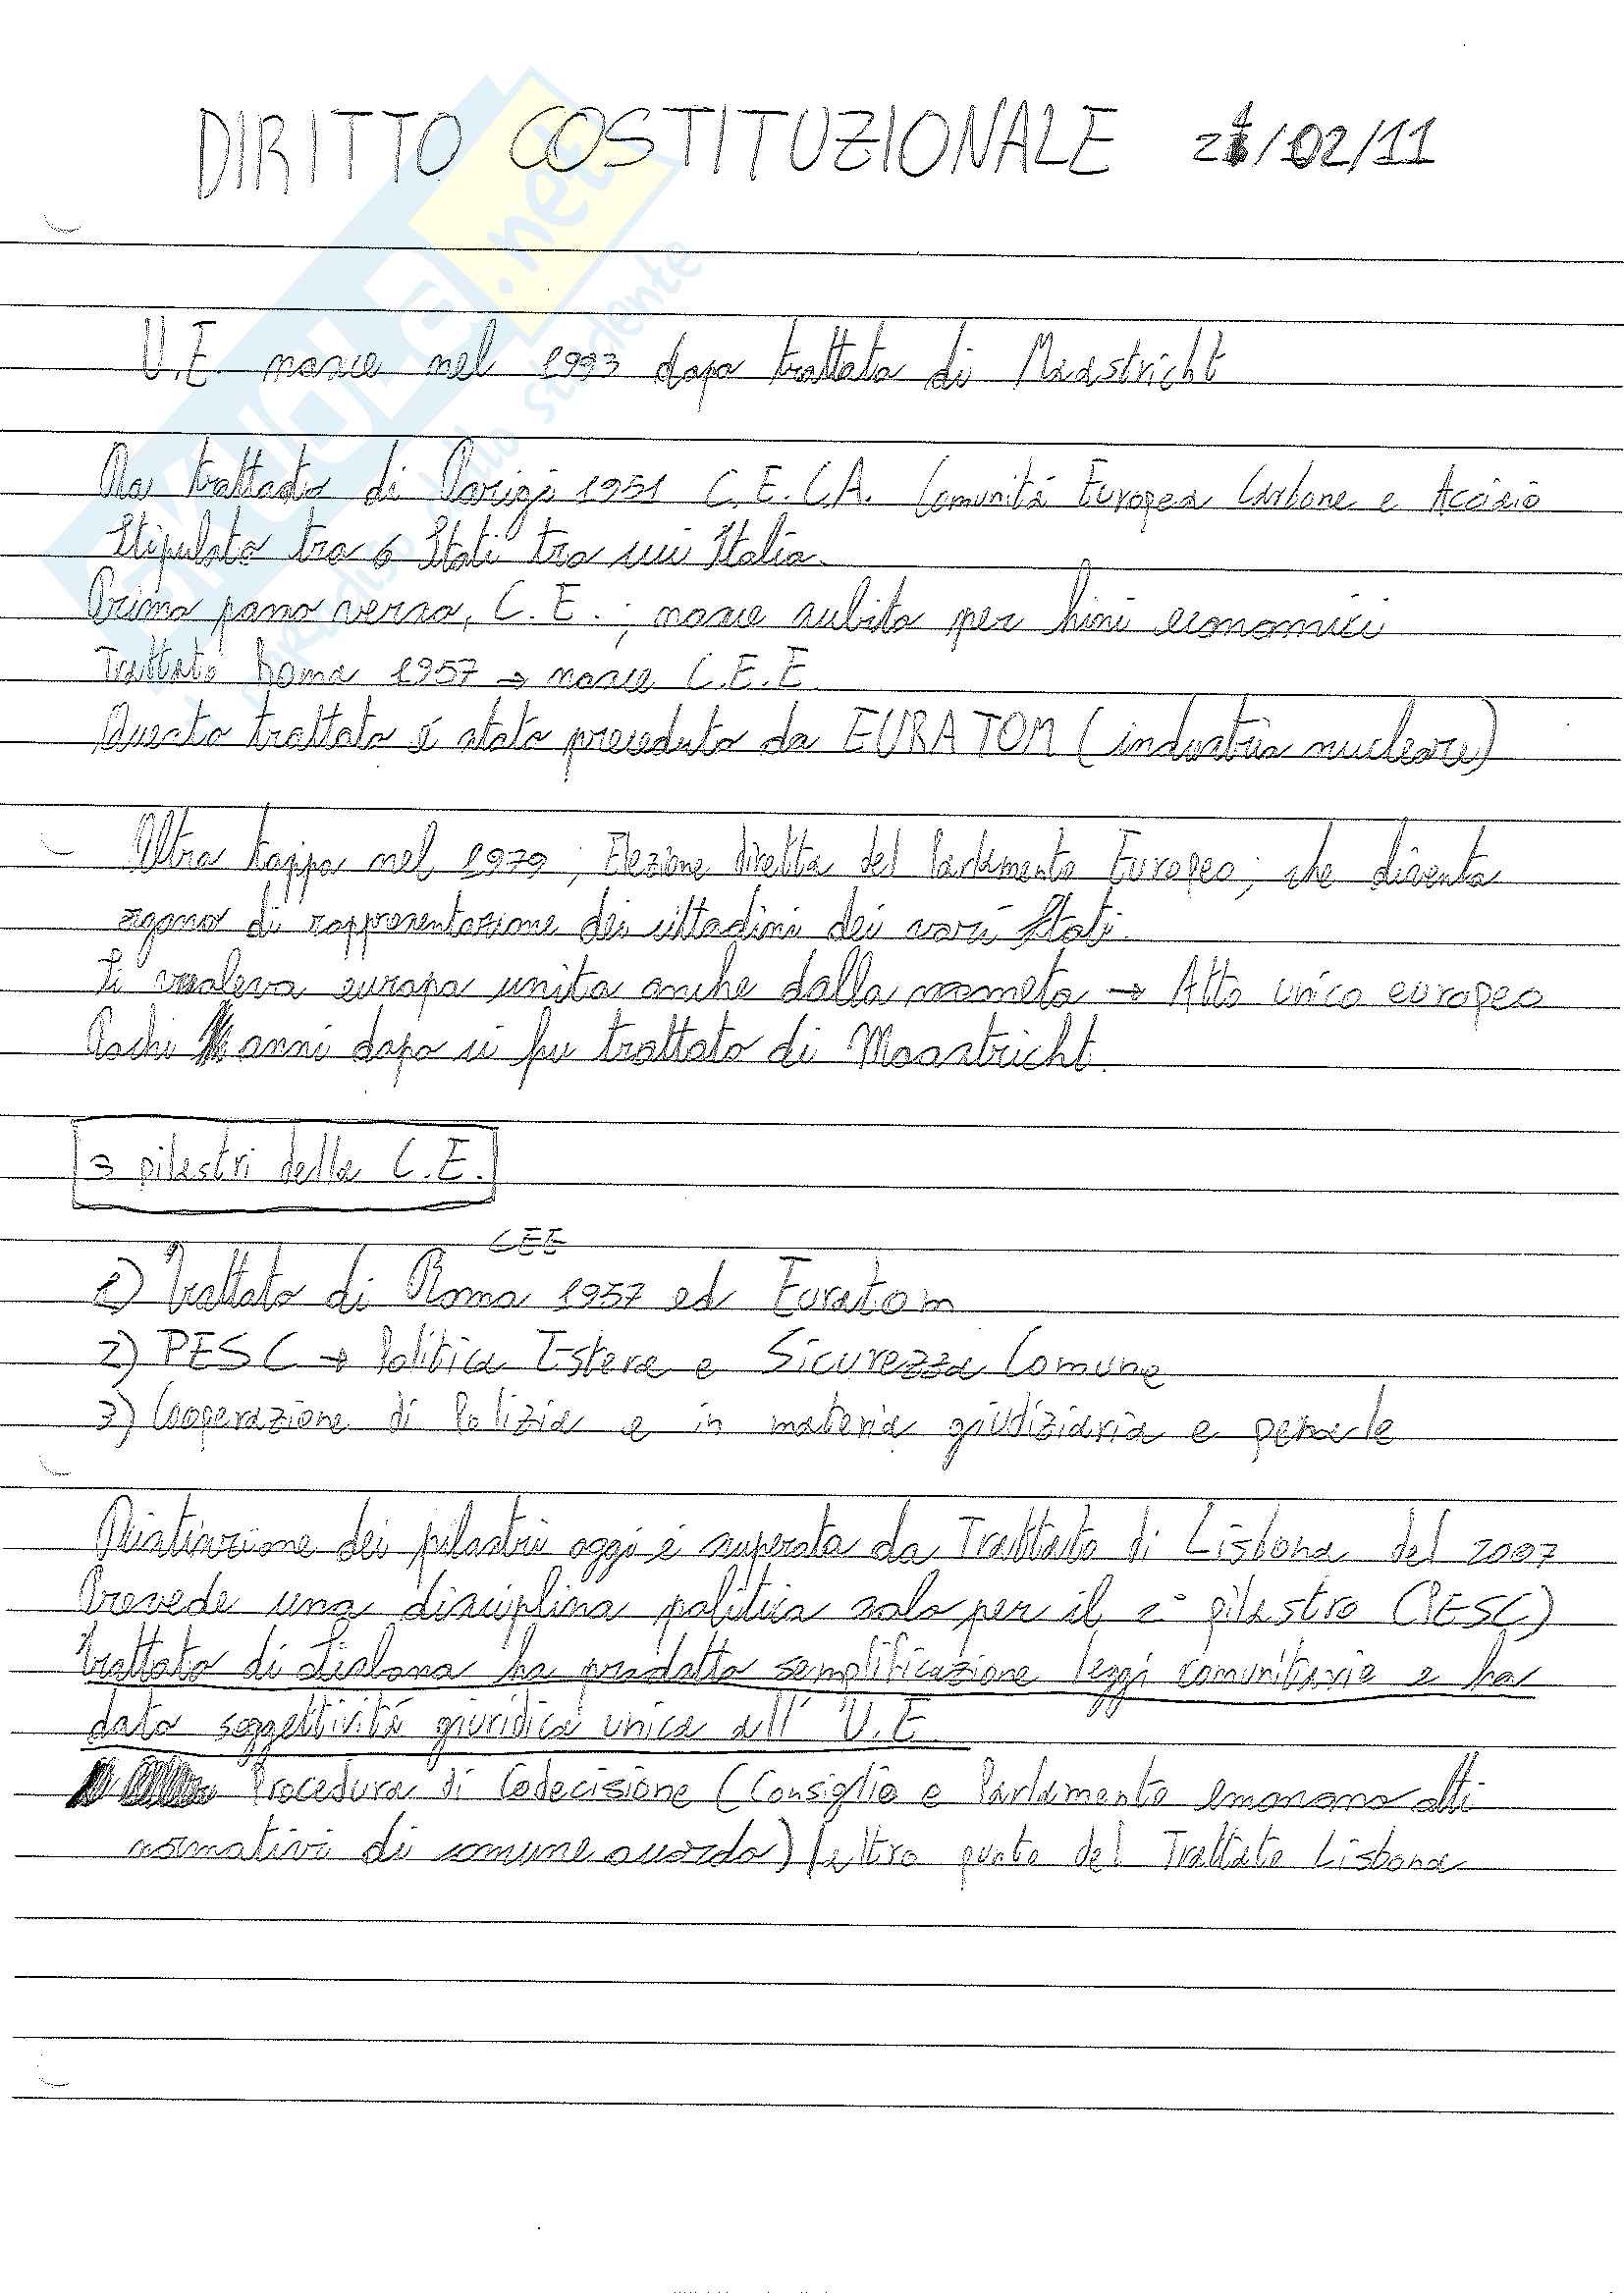 DIRITTO COSTITUZIONALE 21/02/11
U.E. nasce nel 1993 dopo trattato di Maastricht
Ma trattato di Parigi 1951 C.E.C.A. Comunità Europea Carbone e Acciaio
Stipulato tra 6 Stati tra cui Italia.
Primo passo verso, C.E.; nasce subito per fini economici
Trattato Roma 1957 → nasce C.E.E.
Questo trattato é stato preceduto da EURATOM (industria nucleare)
Altra tappa nel 1979; Elezione diretta del Parlamento Europeo; che diventa
organo di rappresentazione dei cittadini dei vari Stati.
Si voleva europa unita anche dalla moneta → Atto unico europeo
Pochi anni dopo ci fu trattato di Maastricht.
3 pilastri della C.E.
CEE
1) Trattato di Roma 1957 ed Euratom
2) PESC → Politica Estera e Sicurezza Comune
3) Cooperazione di Polizia e in materia giudiziaria e penale
Distinzione dei pilastri oggi é superata da Trattato di Lisbona del 2007
Prevede una disciplina politica solo per il 2° pilastro (PESC)
Trattato di Lisbona ha prodotto semplificazione leggi comunitarie e ha
dato soggettività giuridica unica all' U.E.
Procedura di Codecisione (Consiglio e Parlamento emanano atti
normativi di comune accordo) altro punto del Trattato Lisbona
.net
dello studente